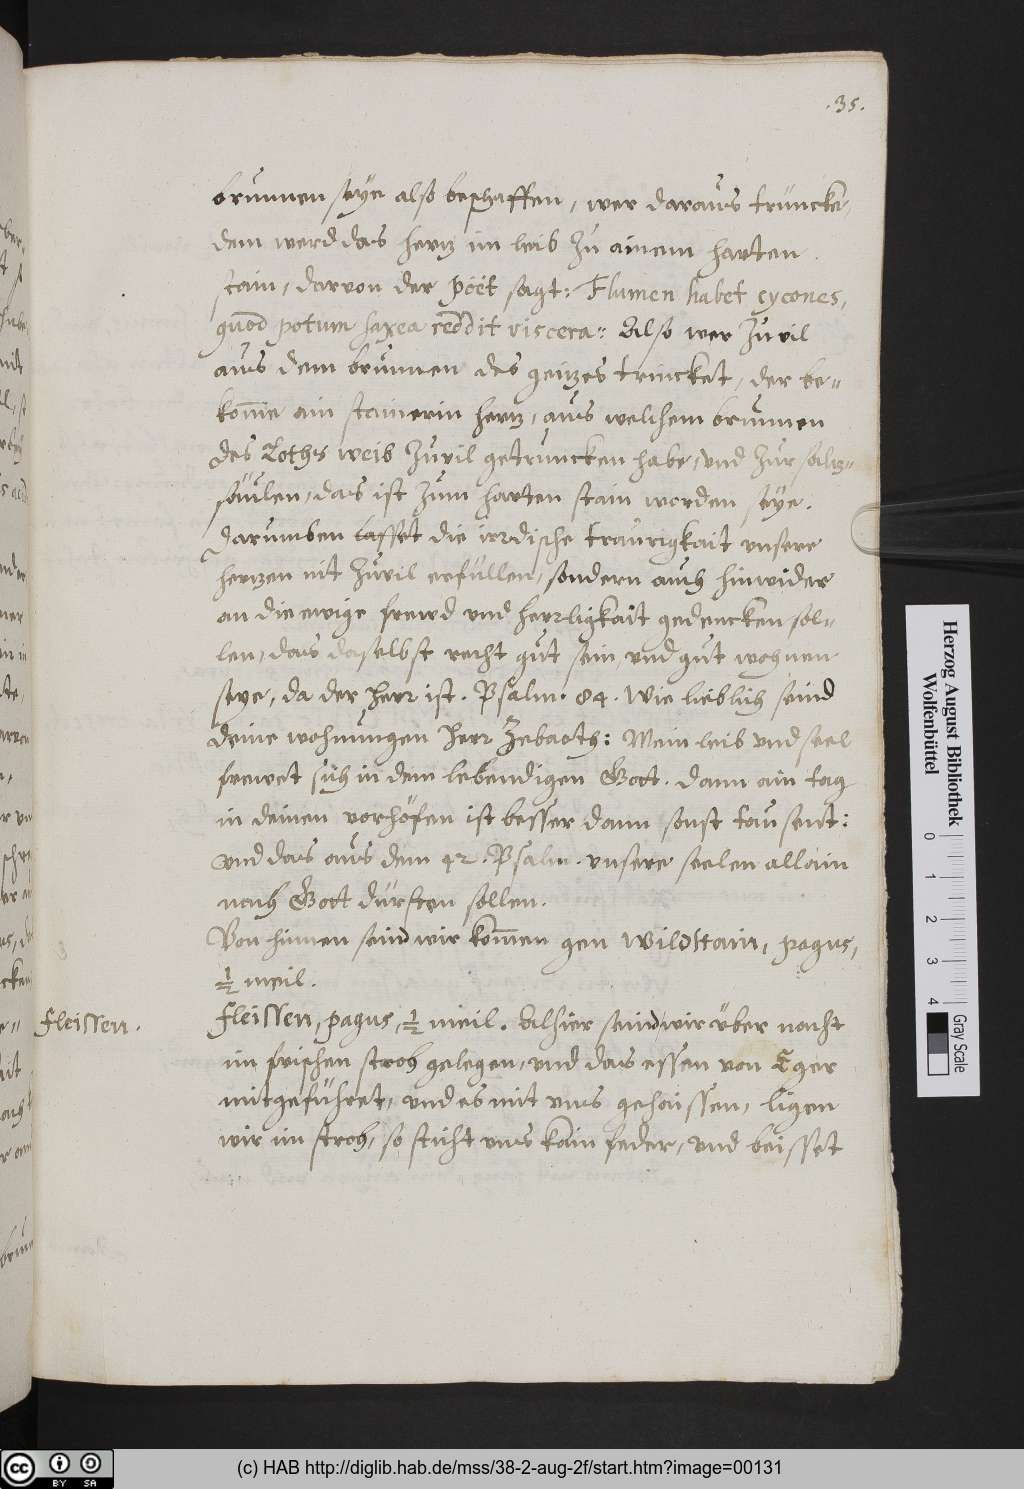 .35.
brunnen seye also beschaffen, wer daraus trüncke,
dem werd das hertz im leib zu ainem harten
stain, darvon der Poët sagt: Flumen habet cycones,
quod potum saxea reddit viscera: Also wer zuvil
aus dem brunnen des geitzes trincket, der be„
kom̄e ain stainerin hertz, aus welchem brunnen
des Loths weib zuvil getruncken habe, und zur saltz„
säulen, das ist zum harten stain worden seye.
Darumben lasset die irrdische traurigkait unsere
hertzen nit zuvil erfüllen, sondern auch hinwider
an die ewige frewd und herrligkait gedencken sol„
len, das daselbst recht gut sein, und gut wohnen
seye, da der Herr ist. Psalm. 84. Wie lieblich seind
deine wohnungen Herr Zebaoth: Mein leib und seel
frewet sich in dem lebendigen Gott. dann ain tag
in deinen vorhöfen ist besser dann sonst tausent:
und das aus dem 42. Psalm. unsere seelen allain
nach Gott dürsten sollen.
Von hinnen seind wir kom̄en gen Wildstain, pagus,
½ meil.
Fleissen.
Fleissen, pagus, ½ meil. Alhier seind wir über nacht
im frischen stroh gelegen, und das essen von Eger
mitgeführet, und es mit uns gehaissen, ligen
wir im stroh, so sticht uns kain feder, und beisset
Herzog August Bibliothek
Wolfenbüttel
0 1 2 3 4
Gray Scale
cc BY SA
(c) HAB http://diglib.hab.de/mss/38-2-aug-2f/start.htm?image=00131